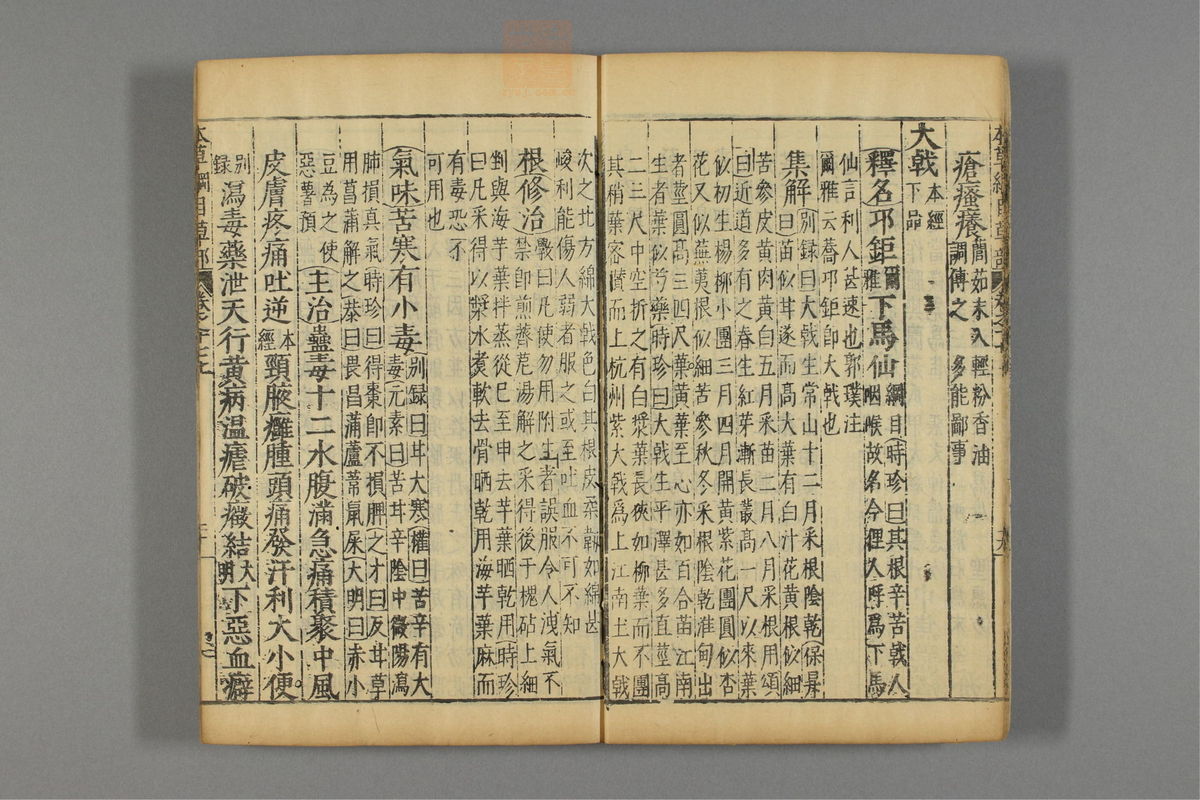 瘡瘙癢䕡茹末入輕粉香油
調傅之 多能鄙事
大戟本經下品
釋名邛鉅爾雅下馬仙綱目時珍曰其根辛苦戟人
咽喉故名今俚人呼爲下馬
仙言利人甚速也郭璞注
爾雅云蕎邛鉅即大戟也
集解別録曰大戟生常山十二月采根陰乾保昇
曰苗似甘遂而高大葉有白汁花黃根似細
苦參皮黃肉黃白五月采苗二月八月采根用頌
曰近道多有之春生紅芽漸長叢高一尺以來葉
似初生楊柳小團三月四月開黃紫花團圓似杏
花又似蕪荑根似細苦參秋冬采根陰乾淮甸出
者莖圓高三四尺葉黃葉至心亦如百合苗江南
生者葉似芍藥時珍曰大戟生平澤甚多直莖高
二三尺中空折之有白漿葉長狹如柳葉而不團
其梢葉密攢而上杭州紫大戟爲上江南土大戟
次之北方綿大戟色白其根皮柔韌如綿甚
峻利能傷人弱者服之或至吐血不可不知
根修治斅曰凡使勿用附生者誤服令人洩氣不
禁即煎薺苨湯解之采得後于槐砧上細
剉與海芋葉拌蒸從巳至申去芋葉晒乾用時珍
曰凡采得以漿水煮軟去骨晒乾用海芋葉麻而
有毒恐不
可用也
氣味苦寒有小毒別録曰甘大寒權曰苦辛有大
毒元素曰苦甘辛陰中微陽瀉
肺損真氣時珍曰得棗即不損脾之才曰反甘草
用菖蒲解之恭曰畏菖蒲蘆葦鼠屎大明曰赤小
豆爲之使
惡薯蕷主治蠱毒十二水腹滿急痛積聚中風
皮膚疼痛吐逆本經頸腋癰腫頭痛發汗利大小便
別録瀉毒藥泄天行黃病溫瘧破癥結大明下惡血癖